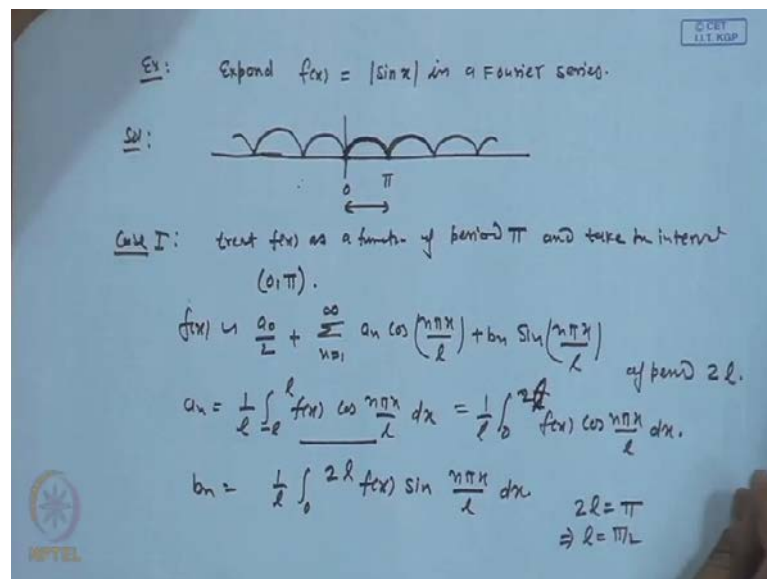 © CET
I.I.T. KGP
Ex: Expand f(x) = |sin x| in a Fourier series.
Sol:
0 π
Case I: treat f(x) as a function of period π and take the interval
(0, π).
f(x) ~ a₀/2 + ∑_{n=1}^{∞} aₙ cos(nπx/l) + bₙ sin(nπx/l)
of period 2l.
aₙ = 1/l ∫_{-l}^{l} f(x) cos nπx/l dx = 1/l ∫_0^{2l} f(x) cos nπx/l dx.
bₙ = 1/l ∫_0^{2l} f(x) sin nπx/l dx.
2l = π
⇒ l = π/2
NPTEL